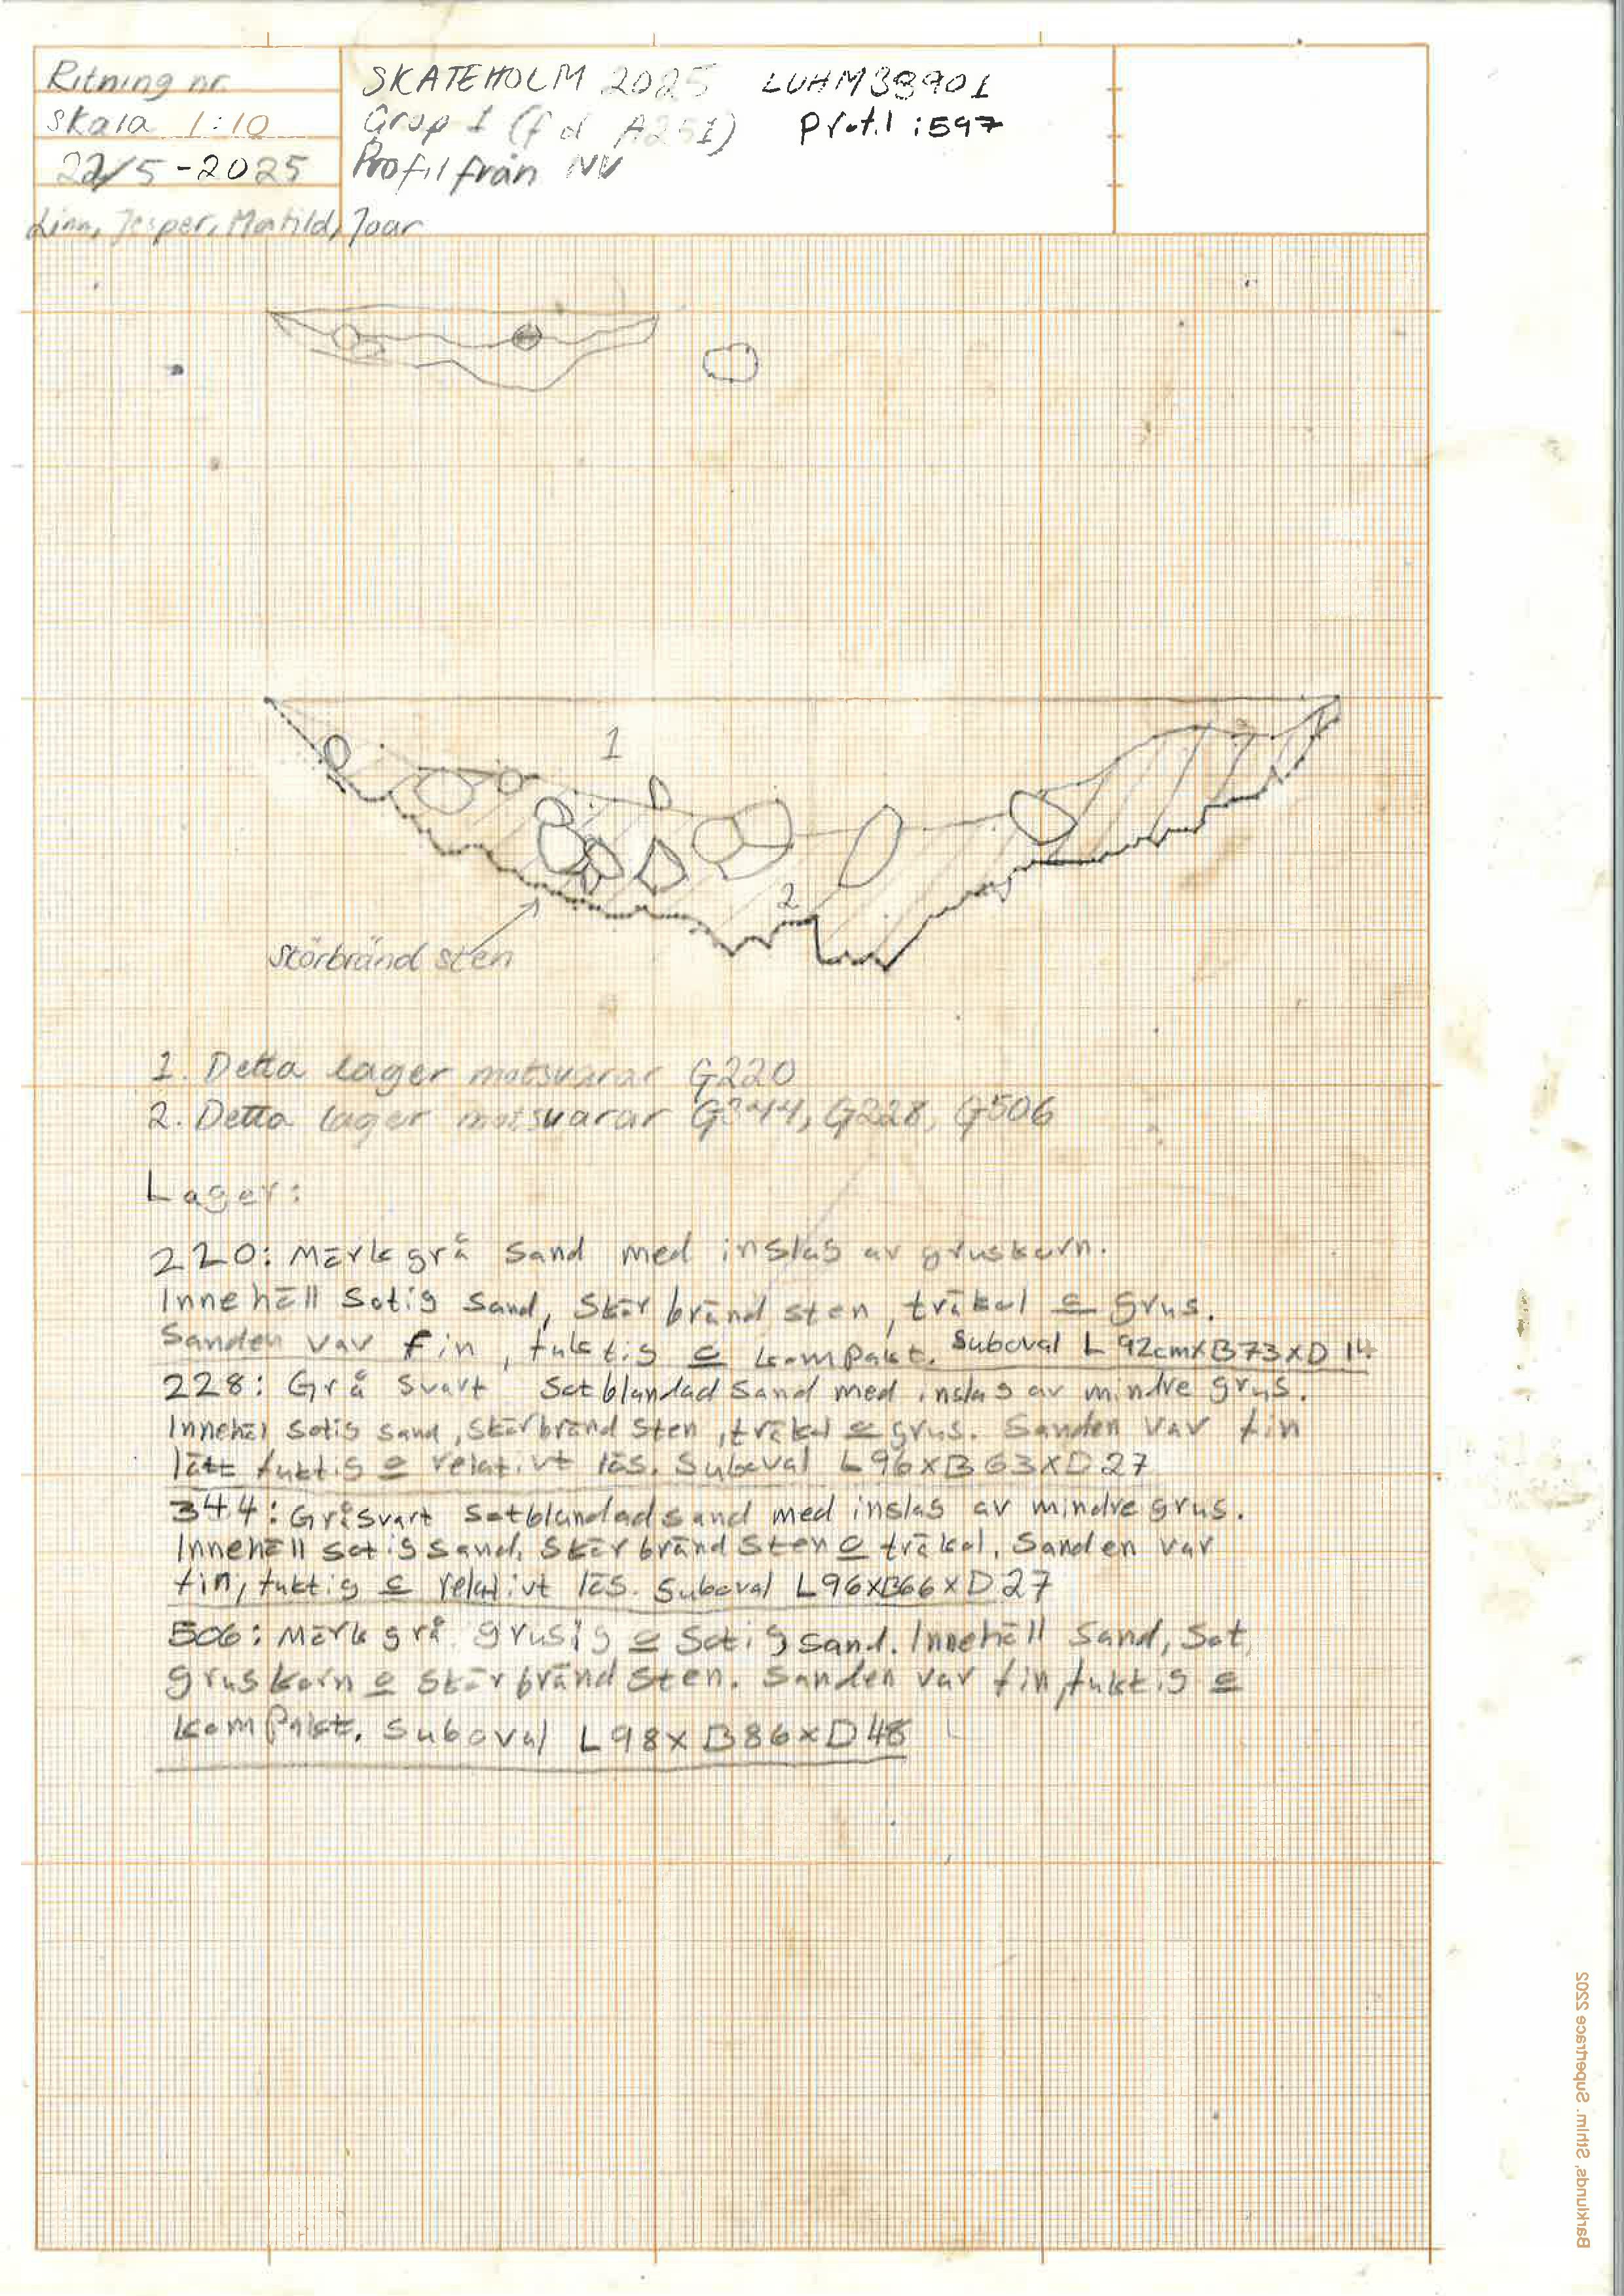 Ritning nr.
Skala 1:10
22/5-2025
Linn, Jesper, Matild, Joar
SKATEHOLM 2025 LUHM33901
Grop 1 (fd A251) Profil:597
Profil från NV
1
2
Skörbränd sten
1. Detta lager motsvarar G220
2. Detta lager motsvarar G344, G228, G506
Lager:
220: Mörk grå sand med inslag av gruskorn.
Innehöll Sotig Sand, Skör bränd sten, träkol o grus.
Sanden var fin, fuktig o kompakt. Suboval L 92cmxB73xD 14
228: Grå svart Sotblandad Sand med inslag av mindre grus.
Innehöl Sotig Sand, Skörbränd Sten, träkol o grus. Sanden var fin
lätt fuktig o relativt lös. Suboval L96xB63xD27
344: Gråsvart Sotblandad sand med inslag av mindre grus.
Innehöll sotig sand, Skör bränd Sten o träkol. Sanden var
fin, fuktig o relativt lös. Suboval L96xB66xD27
506: Mörk grå grusig o Sotig sand. Innehöll Sand, Sot,
gruskorn o Skör bränd Sten. Sanden var fin, fuktig o
kompakt. Suboval L98xB86xD48
Barklunds, Sthlm. Supertrace 2202